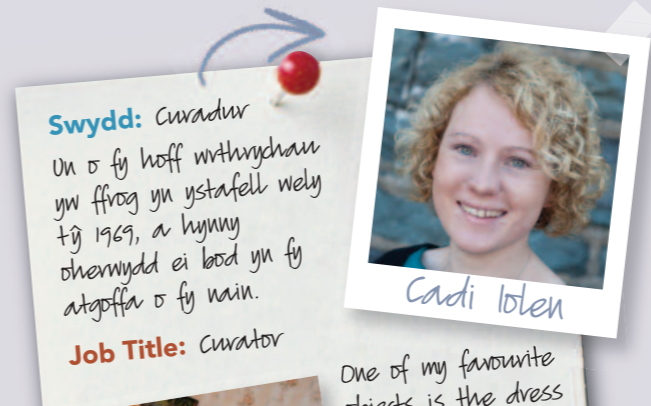 Swydd: Curadur
Un o fy hoff wrthrychau
yw ffrog yn ystafell wely
tŷ 1969, a hynny
oherwydd ei bod yn fy
atgoffa o fy nain.
Job Title: Curator
Cadi Iolen
One of my favourite
objects is the dress